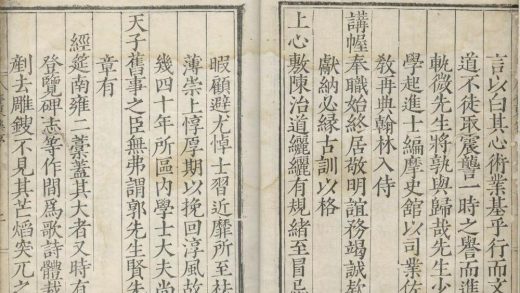 言以白其心術業基乎行而文
道不徒取震讋一時之譽而進
軌微先生將孰與歸哉先生少
學起進士編摩史館以司業佐
敎再典翰林入侍
講幄奉職始終居敬明誼務竭誠
獻納必緣古訓以格
上心敷陳治道纚纚有規緒至冒忌
暇顧避尤悼士習近靡所至袪
薄崇上惇厚期以挽回淳風故
幾四十年所區内學士大夫尚
天子舊事之臣無弗謂郭先生賢
章有
經筵南雍二藁蓋其大者又時有
登覽碑志等作間爲歌詩體裁
剷去雕鎪不見其芒焰突兀之